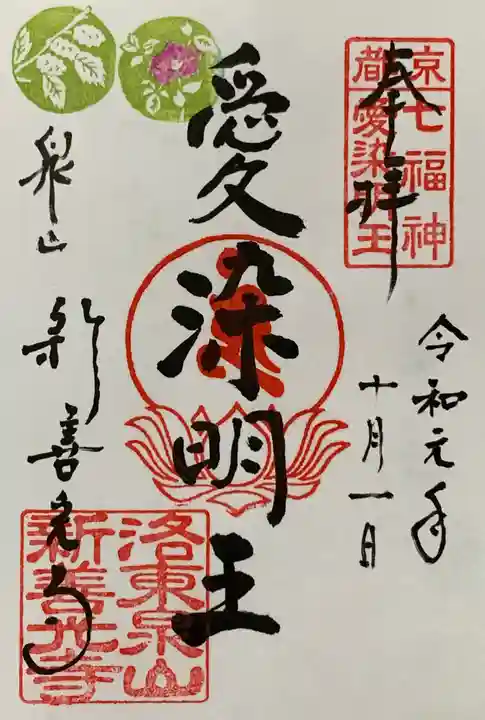 奉拝
京
都
七福神
愛染明王
令和元年
十月一日
愛染明王
泉山
新善光寺
洛東泉山
新善光寺